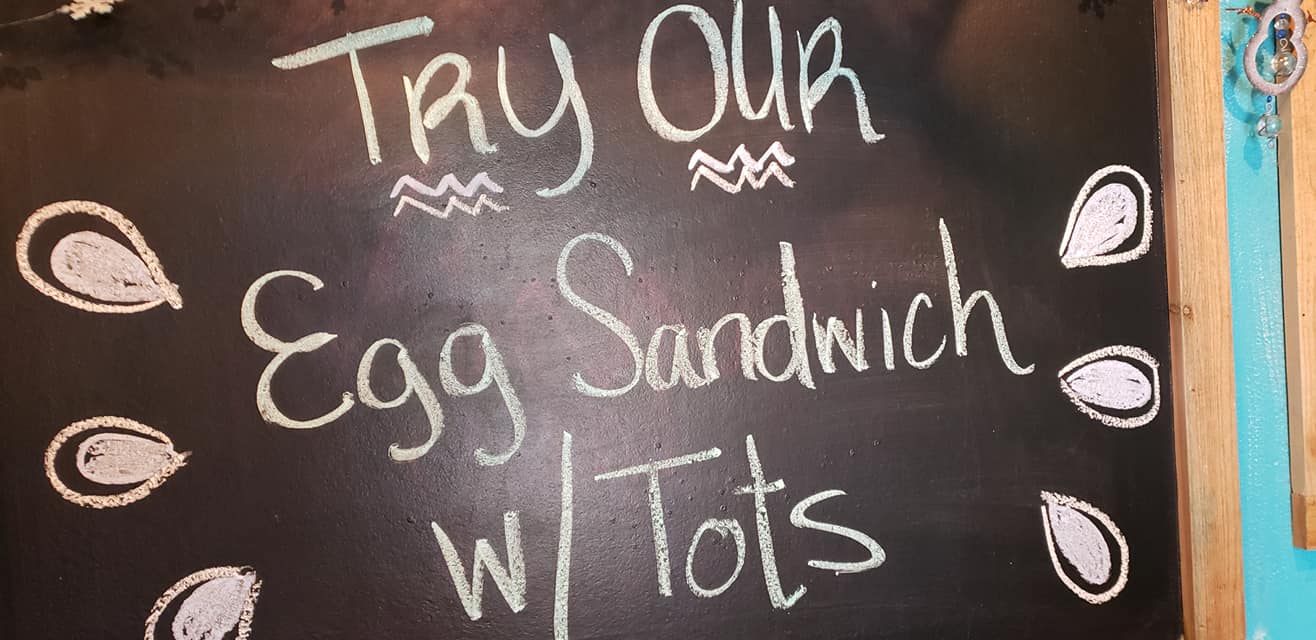 Try Our
Egg Sandwich
w/ Tots